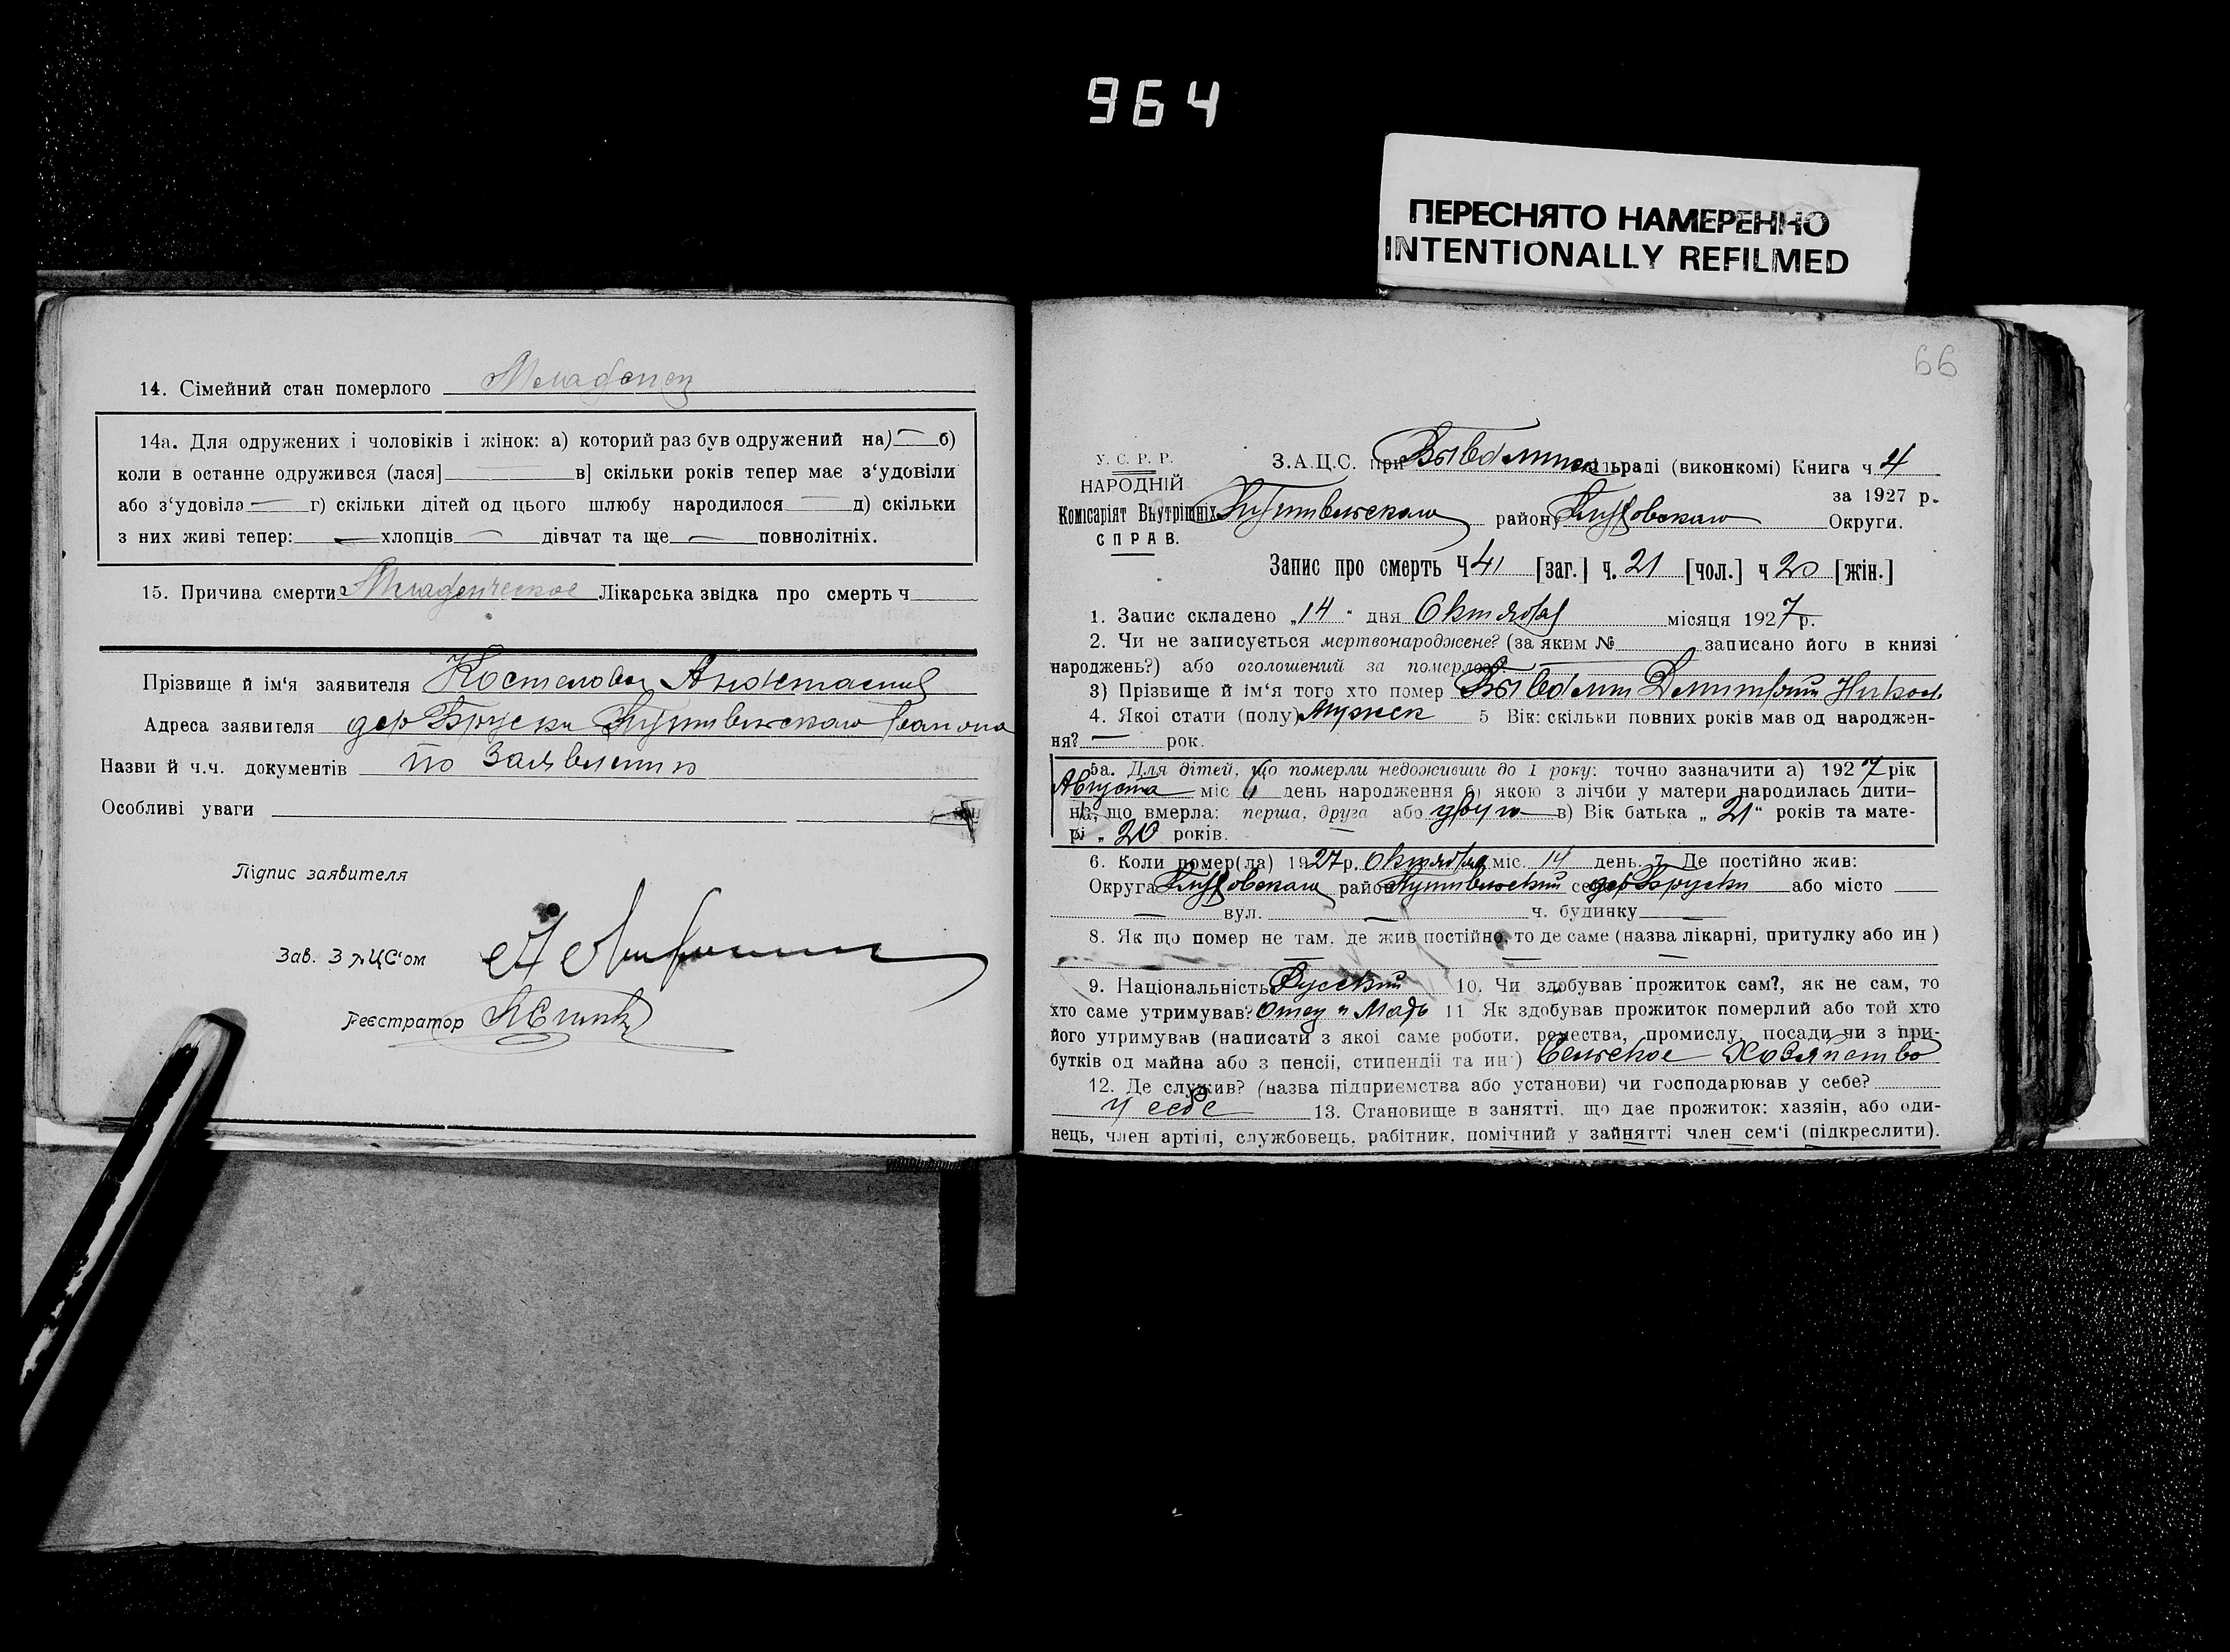 964
ПЕРЕСНЯТО НАМЕРЕННО
INTENTIONALLY REFILMED
14. Сімейний стан померлого Младенец
14а. Для одружених і чоловіків і жінок: а) которий раз був одружений на) — б)
коли в останне одружився (лася] — в] скільки років тепер має з‘удовіли
або з‘удовіла — г) скільки дітей од цього шлюбу народилося — д) скільки
з них живі тепер: — хлопців — дівчат та ще — повнолітніх.
15. Причина смерти Младенческое Лікарська звідка про смерть ч
Прізвище й ім‘я заявителя Анастасия
Адреса заявителя дер Бруски Путивльскаго района
Назви й ч.ч. документів по заявлению
Особливі уваги
Підпис заявителя
Зав. ЗАЦС‘ом
Реєстратор
66
У. С. Р. Р.
НАРОДНІЙ
Комісаріят Внутрішніх
СПРАВ.
З.А.Ц.С. при сільраді (виконкомі) Книга ч. 4
за 1927 р.
Путивльскаго району Глуховскаго Округи.
Запис про смерть Ч 41 [заг.] ч. 21 [чол.] ч 20 [жін.]
1. Запис складено „14“ дня Октября місяця 1927 р.
2. Чи не записується мертвонароджене? (за яким № записано його в книзі
народжень?) або оголошений за померлого —
3) Прізвище й ім‘я того хто помер Дмитрий Никол
4. Якої стати (полу) Мужск 5 Вік: скільки повних років мав од народжен-
ня? — рок.
5а. Для дітей, що померли недоживши до 1 року: точно зазначити а) 1927 рік
Августа міс 6 день народження б) якою з лічби у матери народилась дити-
на, що вмерла: перша, друга або другую в) Вік батька „21“ років та мате-
рі „20 років.
6. Коли помер(ла) 1927 р. Октября міс. 14 день. 7. Де постійно жив:
Округа Глуховскаго район Путивльский село дер Бруски або місто —
— вул. — ч. будинку —
8. Як що помер не там, де жив постійно, то де саме (назва лікарні, притулку або ин)
— — —
9. Національність Русский 10. Чи здобував прожиток сам?, як не сам, то
хто саме утримував? Отец и Мать 11 Як здобував прожиток померлий або той хто
його утримував (написати з якої саме роботи, ремества, промислу, посади чи з при-
бутків од майна або з пенсії, стипендії та ин.) Сельское Хозяйство
12. Де служив? (назва підприємства або установи) чи господарював у себе?
у себе 13. Становище в занятті, що дає прожиток: хазяїн, або оди-
нець, член артілі, службовець, рабітник, помічний у занятті член сем‘і (підкреслити).